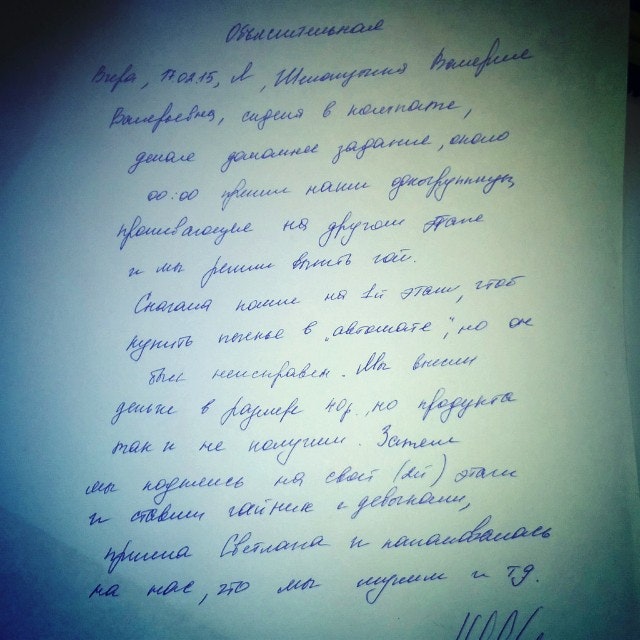 Объяснительная
Вчера, 17.02.15, я, Валерия
Валерьевна, сидела в комнате,
делала домашнее задание, около
00:00 пришли наши одногруппницы,
проживающие на другом этаже
и мы решили выпить чай.
Сначала пошли на 1й этаж, чтоб
купить печенье в "автомате", но он
был неисправен. Мы внесли
деньги в размере 40р, но продукта
так и не получили. Затем
мы поднялись на свой (2й) этаж
и ставили чайник с девочками,
пришла Светлана и нажаловалась
на нас, что мы шумим и т.д.